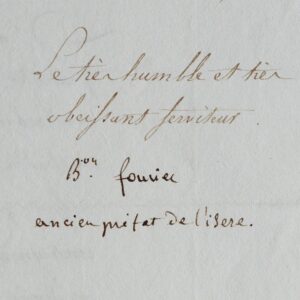 Le très humble et très
obeissant serviteur.
Bon. fourier
ancien prefet de l'isere.